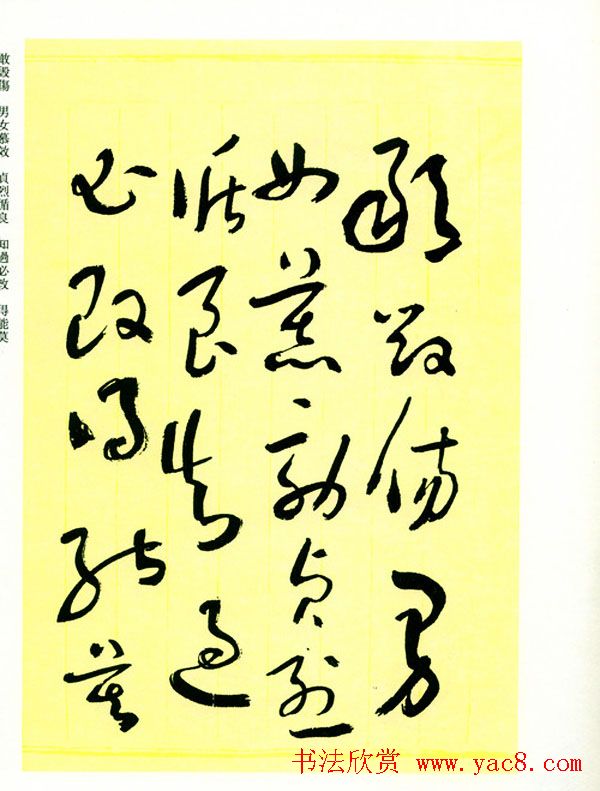 敢毀傷男
女慕效貞烈
循良知過
必改得能莫
敢毀傷 男女慕效 貞烈循良 知過必改 得能莫
书法欣赏 www.yac8.com